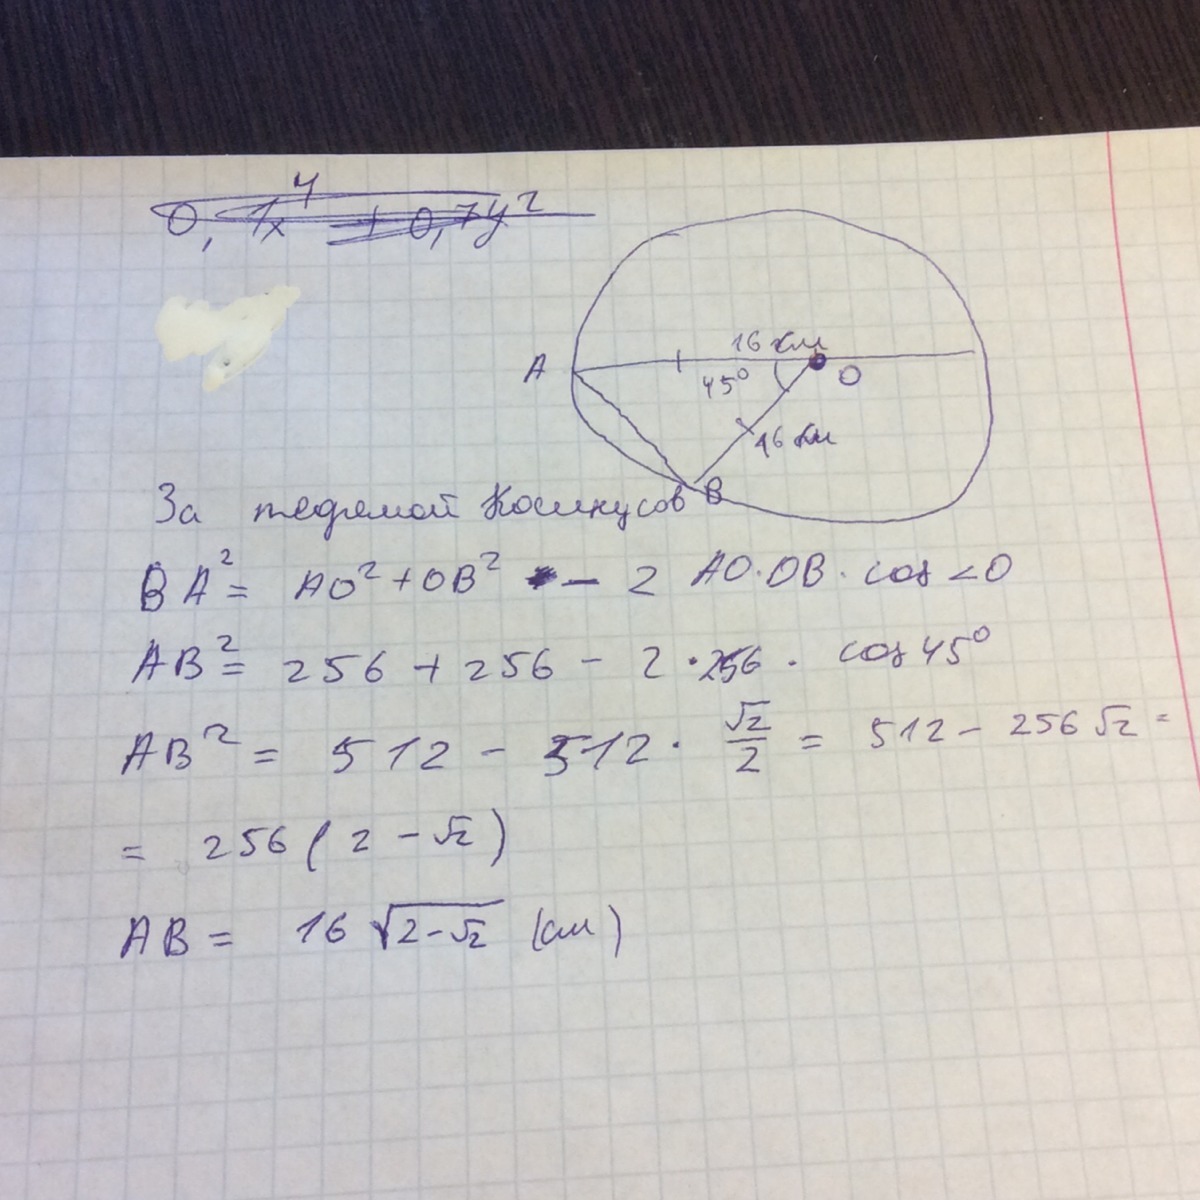 0,1x⁴ + 0,7y²
16 см
A
45°
O
16 см
B
За теоремой Косинусов
BA² = AO² + OB² - 2 AO·OB·cos<O
AB² = 256 + 256 - 2·256·cos45°
AB² = 512 - 512·√2/2 = 512 - 256√2 =
= 256(2-√2)
AB = 16√(2-√2) (см)